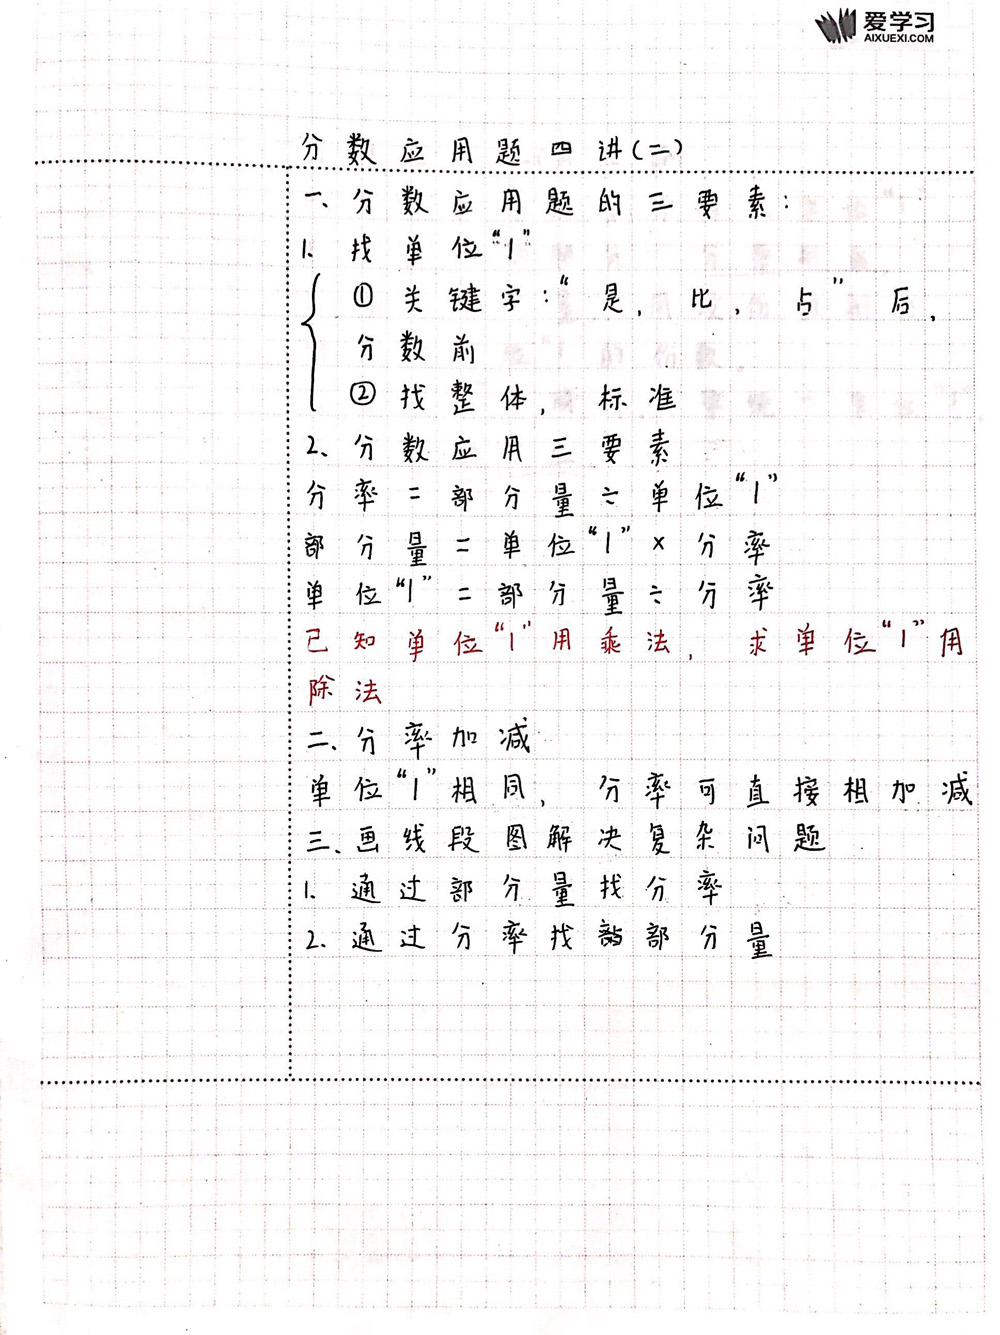 爱学习
AIXUEXI.COM
分数应用题四讲(二)
一、分数应用题的三要素:
1. 找单位“1”
①关键字:“是,比,占”后,
分数前
②找整体,标准
2、分数应用三要素
分率=部分量÷单位“1”
部分量=单位“1”×分率
单位“1”=部分量÷分率
已知单位“1”用乘法,求单位“1”用
除法
二、分率加减
单位“1”相同,分率可直接相加减
三、画线段图解决复杂问题
1. 通过部分量找分率
2. 通过分率找部分量